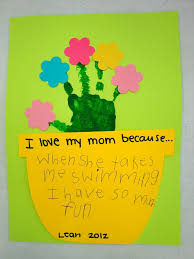 I love my mom because...
When she takes
me swimming
I have so mu
fun
Lean 2012